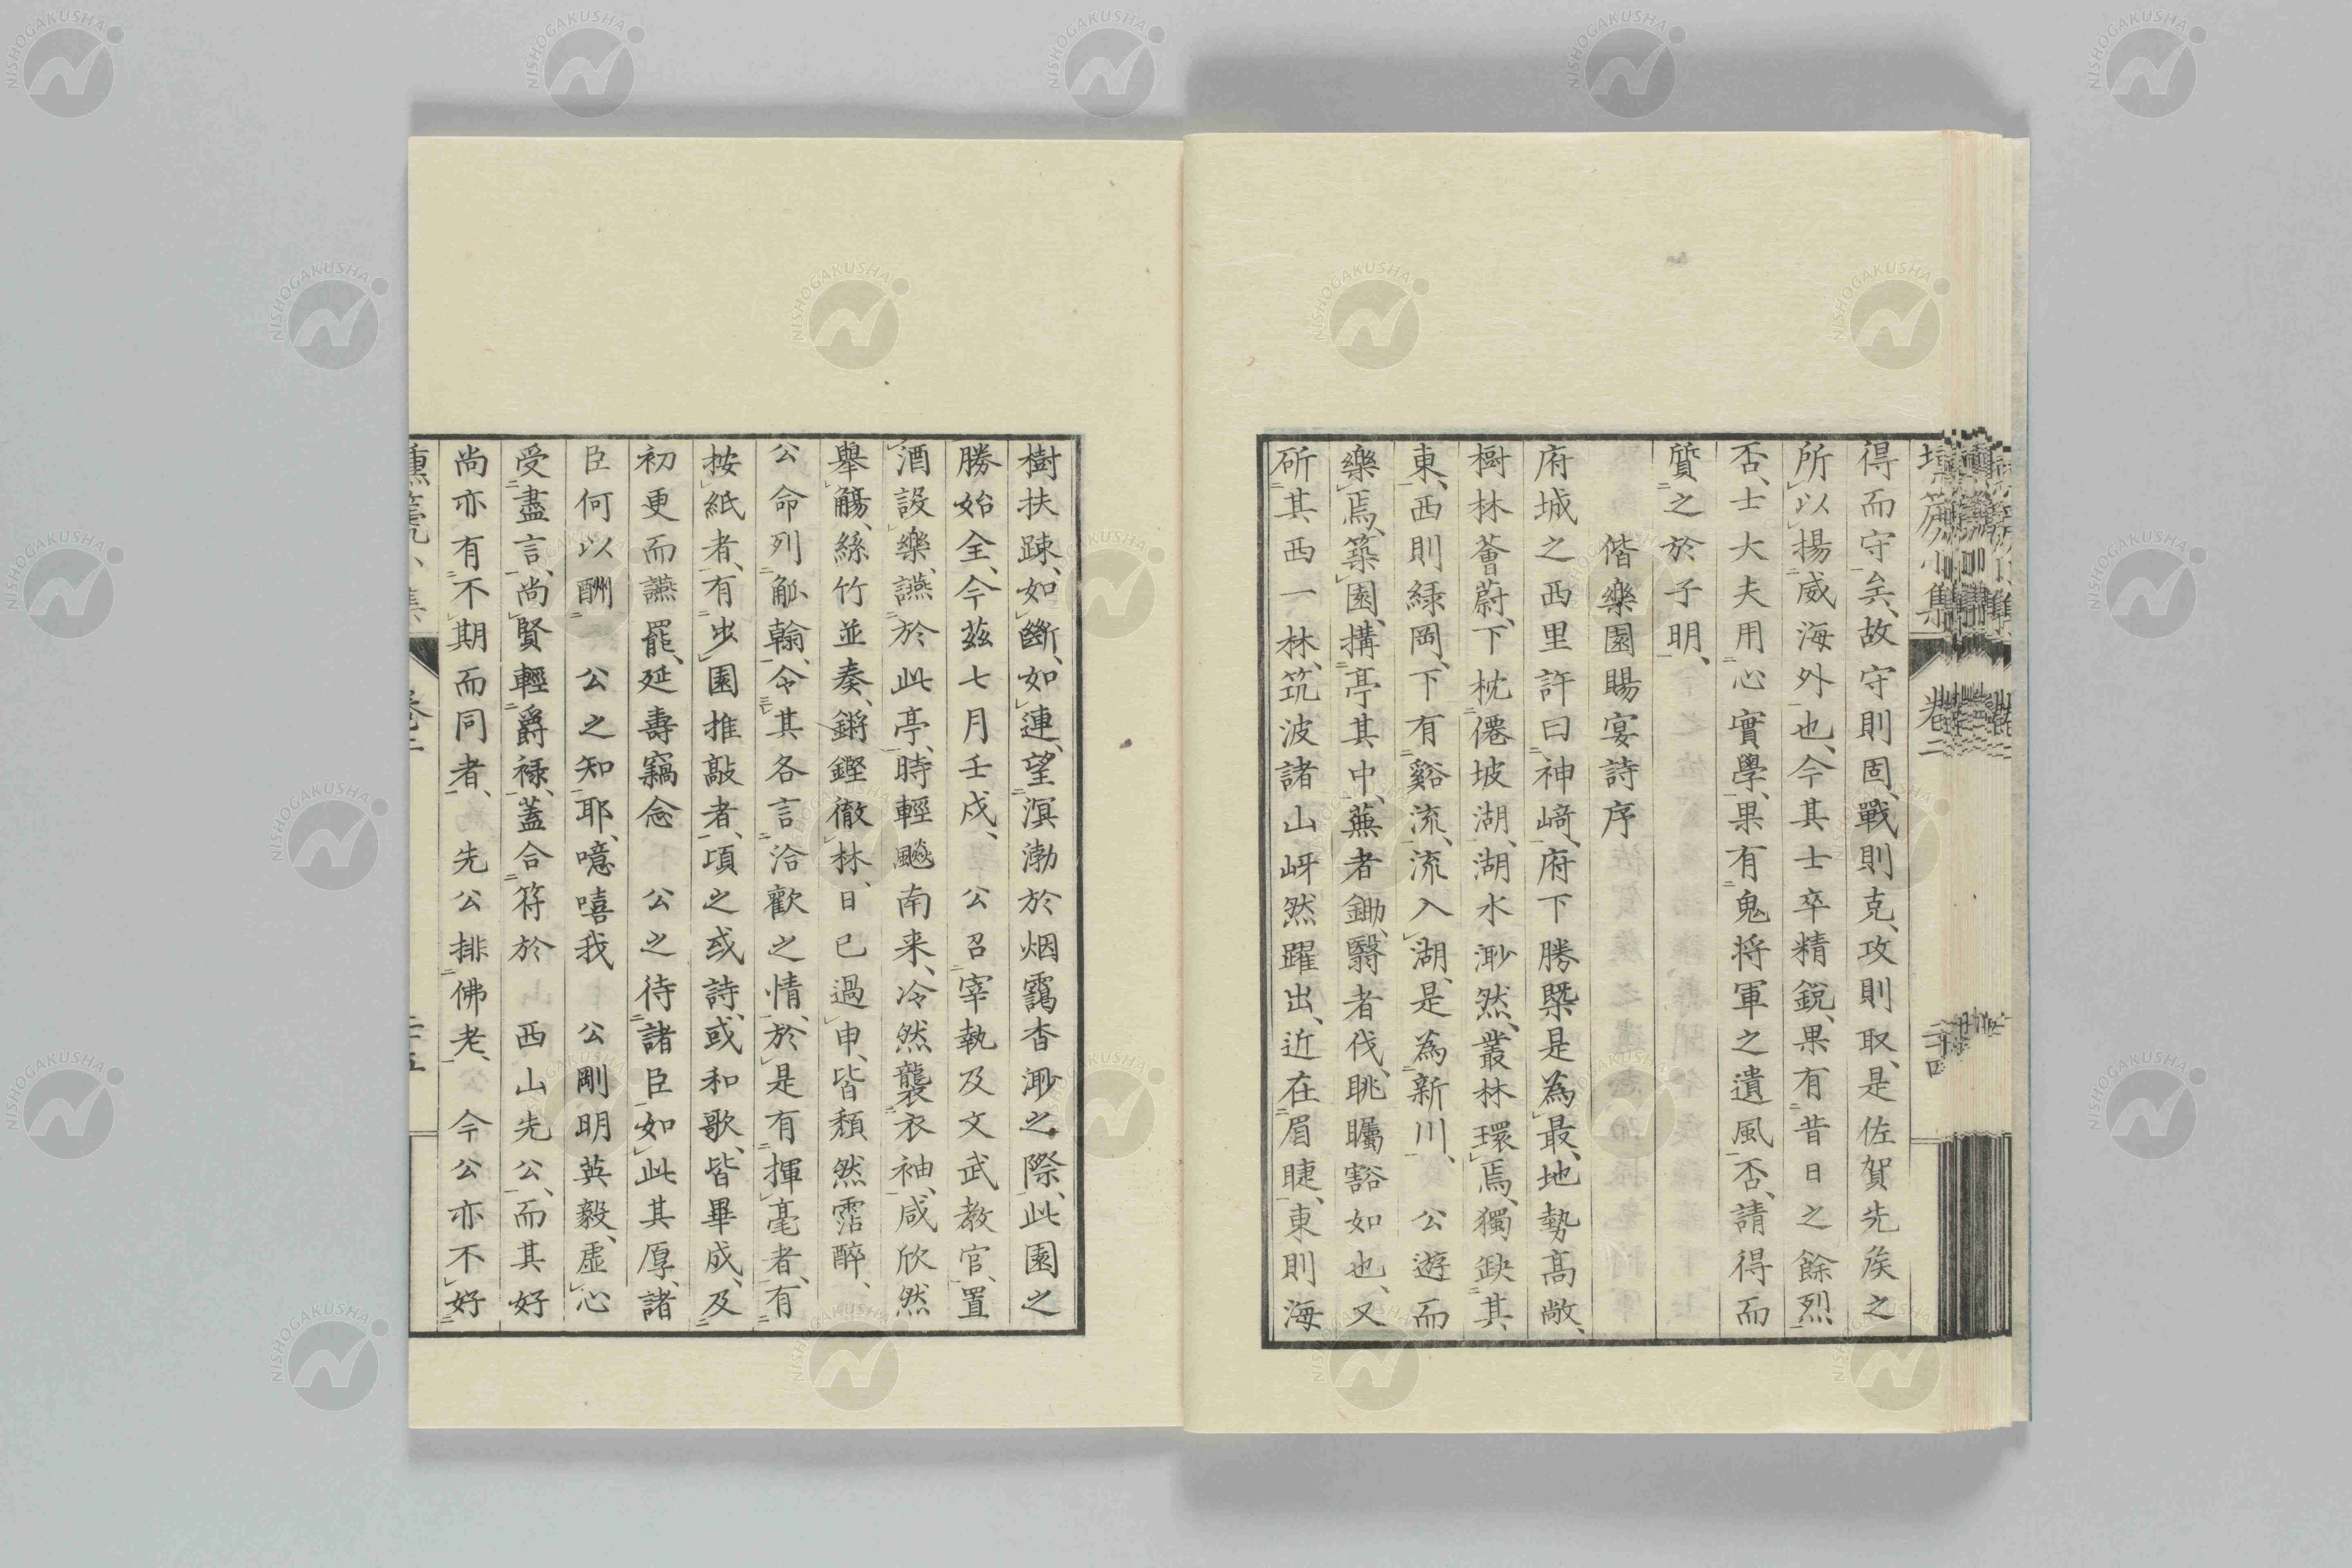 得而守矣、故守則固、戰則克、攻則取、是佐賀先矦之
所以揚威海外也、今其士卒精銳、果有昔日之餘烈
否、士大夫用心實學、果有鬼將軍之遺風否、請得而
質之於子明、
偕樂園賜宴詩序
府城之西里許曰神﨑、府下勝槩是為最、地勢高敞、
樹林薈蔚、下枕僊坡湖、湖水渺然、叢林環焉、獨缺其
東、西則緑岡、下有谿流、流入湖、是為新川、　公遊而
樂焉、築園、搆亭其中、蕪者鋤、翳者伐、眺矚豁如也、又
斫其西一林、筑波諸山岈然躍出、近在眉睫、東則海
樹扶踈、如斷、如連、望溟渤於烟靄杳渺之際、此園之
勝始全、今茲七月壬戍、　公召宰執及文武教官、置
酒設樂、讌於此亭、時輕颸南来、冷然襲衣袖、咸欣然
舉觴、絲竹並奏、鏘鏗徹林、日已過申、皆頽然霑醉、
公命列觚翰、令其各言洽歡之情、於是有揮毫者、有
按紙者、有出園推敲者、頃之或詩、或和歌、皆畢成、及
初更而讌罷、延壽竊念　公之待諸臣如此其厚、諸
臣何以酬　公之知耶、噫嘻我　公剛明英毅、虛心
受盡言、尚賢輕爵禄、蓋合符於　西山先公、而其好
尚亦有不期而同者、　先公排佛老、　今公亦不好
塤箎小集
卷二
二十四
卷二
二十五
NISHOGAKUSHA